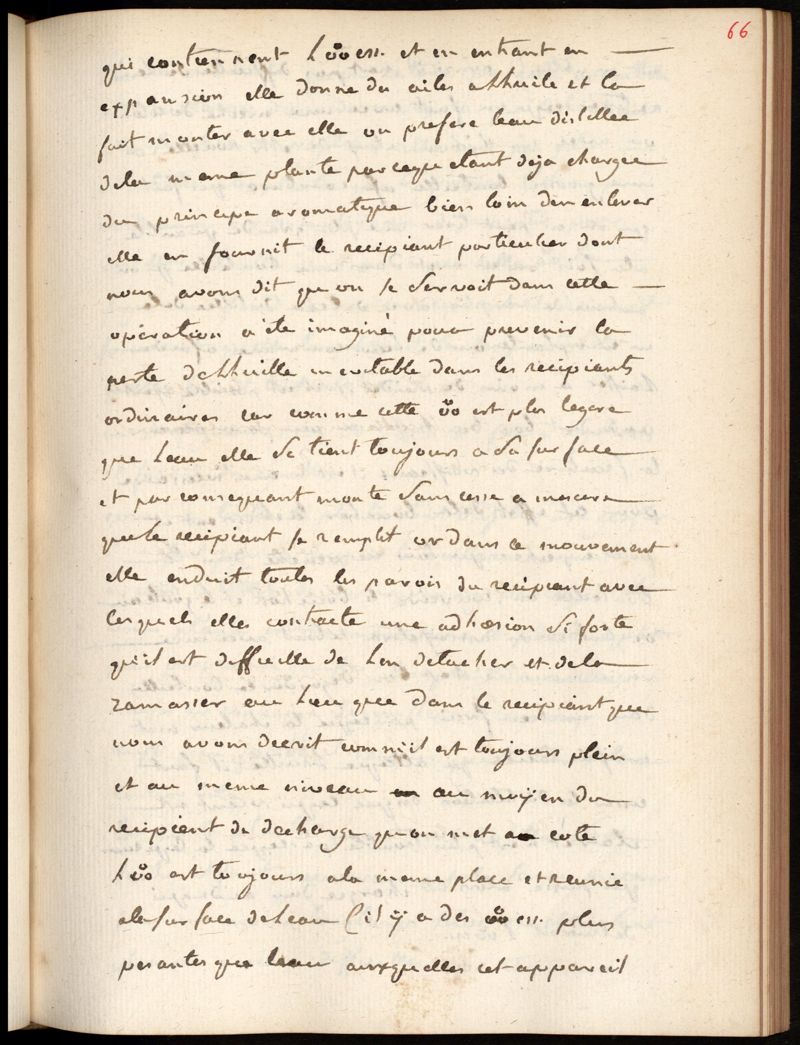 66
qui contiennent L'oo ess. et en entrant en —
expansion elle donne du ailes a Lhuile et la
fait monter avec elle on prefere leau distillee
dela meme plante parcequ etant deja chargee
du principe aromatique bien loin den enlever
elle en fournit le recipiant particulier dont
nous avons dit que on se servoit dans cette —
opération a été imaginé pour prevenir la
perte de Lhuille inevitable dans les recipiants
ordinaires car comme cette oo est plus legere
que Leau elle se tient toujours a sa surface
et par consequant monte sans cesse a mesure
que le recipiant se remplit or dans ce mouvement
elle enduit toutes les parois du recipiant avec
lesquels elles contracte une adhoesion si forte
qu'il est difficille de Len detacher et dela
ramasser au Lieu que dans le recipiant que
nous avons decrit comm il est toujours plein
et au meme niveau au moÿen du
recipient de decharge quon met a cote
Loo est toujours ala meme place et reunie
ala surface de Leau (il ÿ a des oo ess. plus
pesantes que leau auxquelles cet appareil